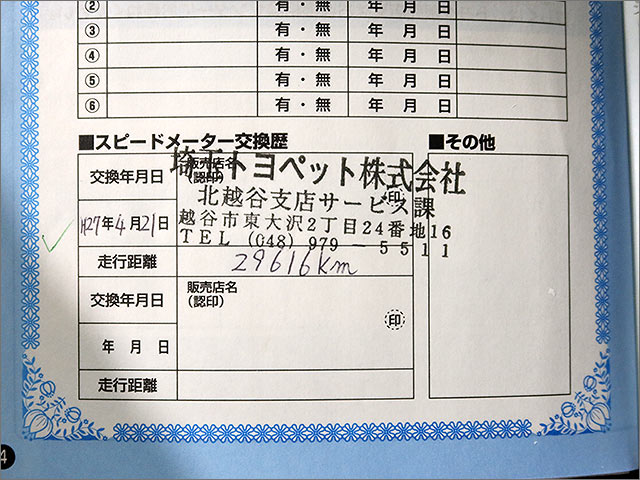 ② 有・無 年 月 日
③ 有・無 年 月 日
④ 有・無 年 月 日
⑤ 有・無 年 月 日
⑥ 有・無 年 月 日
■スピードメーター交換歴
■その他
交換年月日
販売店名
(認印)
印
埼玉トヨペット株式会社
北越谷支店サービス課
越谷市東大沢2丁目24番地16
TEL (048) 979-5511
H27年4月21日
走行距離
29616km
交換年月日
販売店名
(認印)
印
年 月 日
走行距離
4